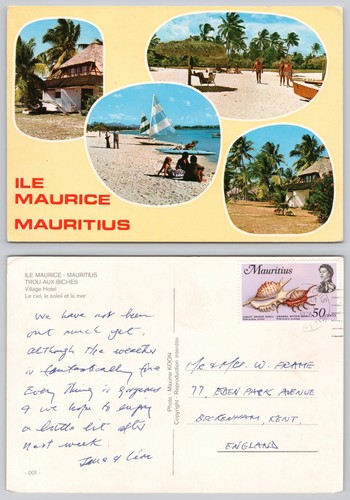 ILE
MAURICE
MAURITIUS
ILE MAURICE - MAURITIUS
TROU-AUX-BICHES
Village Hotel
Le ciel, le soleil et la mer
We have not been
out much yet.
although the weather
is fantastically fine
Every thing is gorgeous
& we hope to enjoy
a little bit after
next week.
Photo - Maxime KOON
Copyright - Reproduction interdite
- 001 -
Mauritius
50
Mr & Mrs. W. FRAME
77, EDEN PARK AVENUE
BECKENHAM, KENT.
ENGLAND